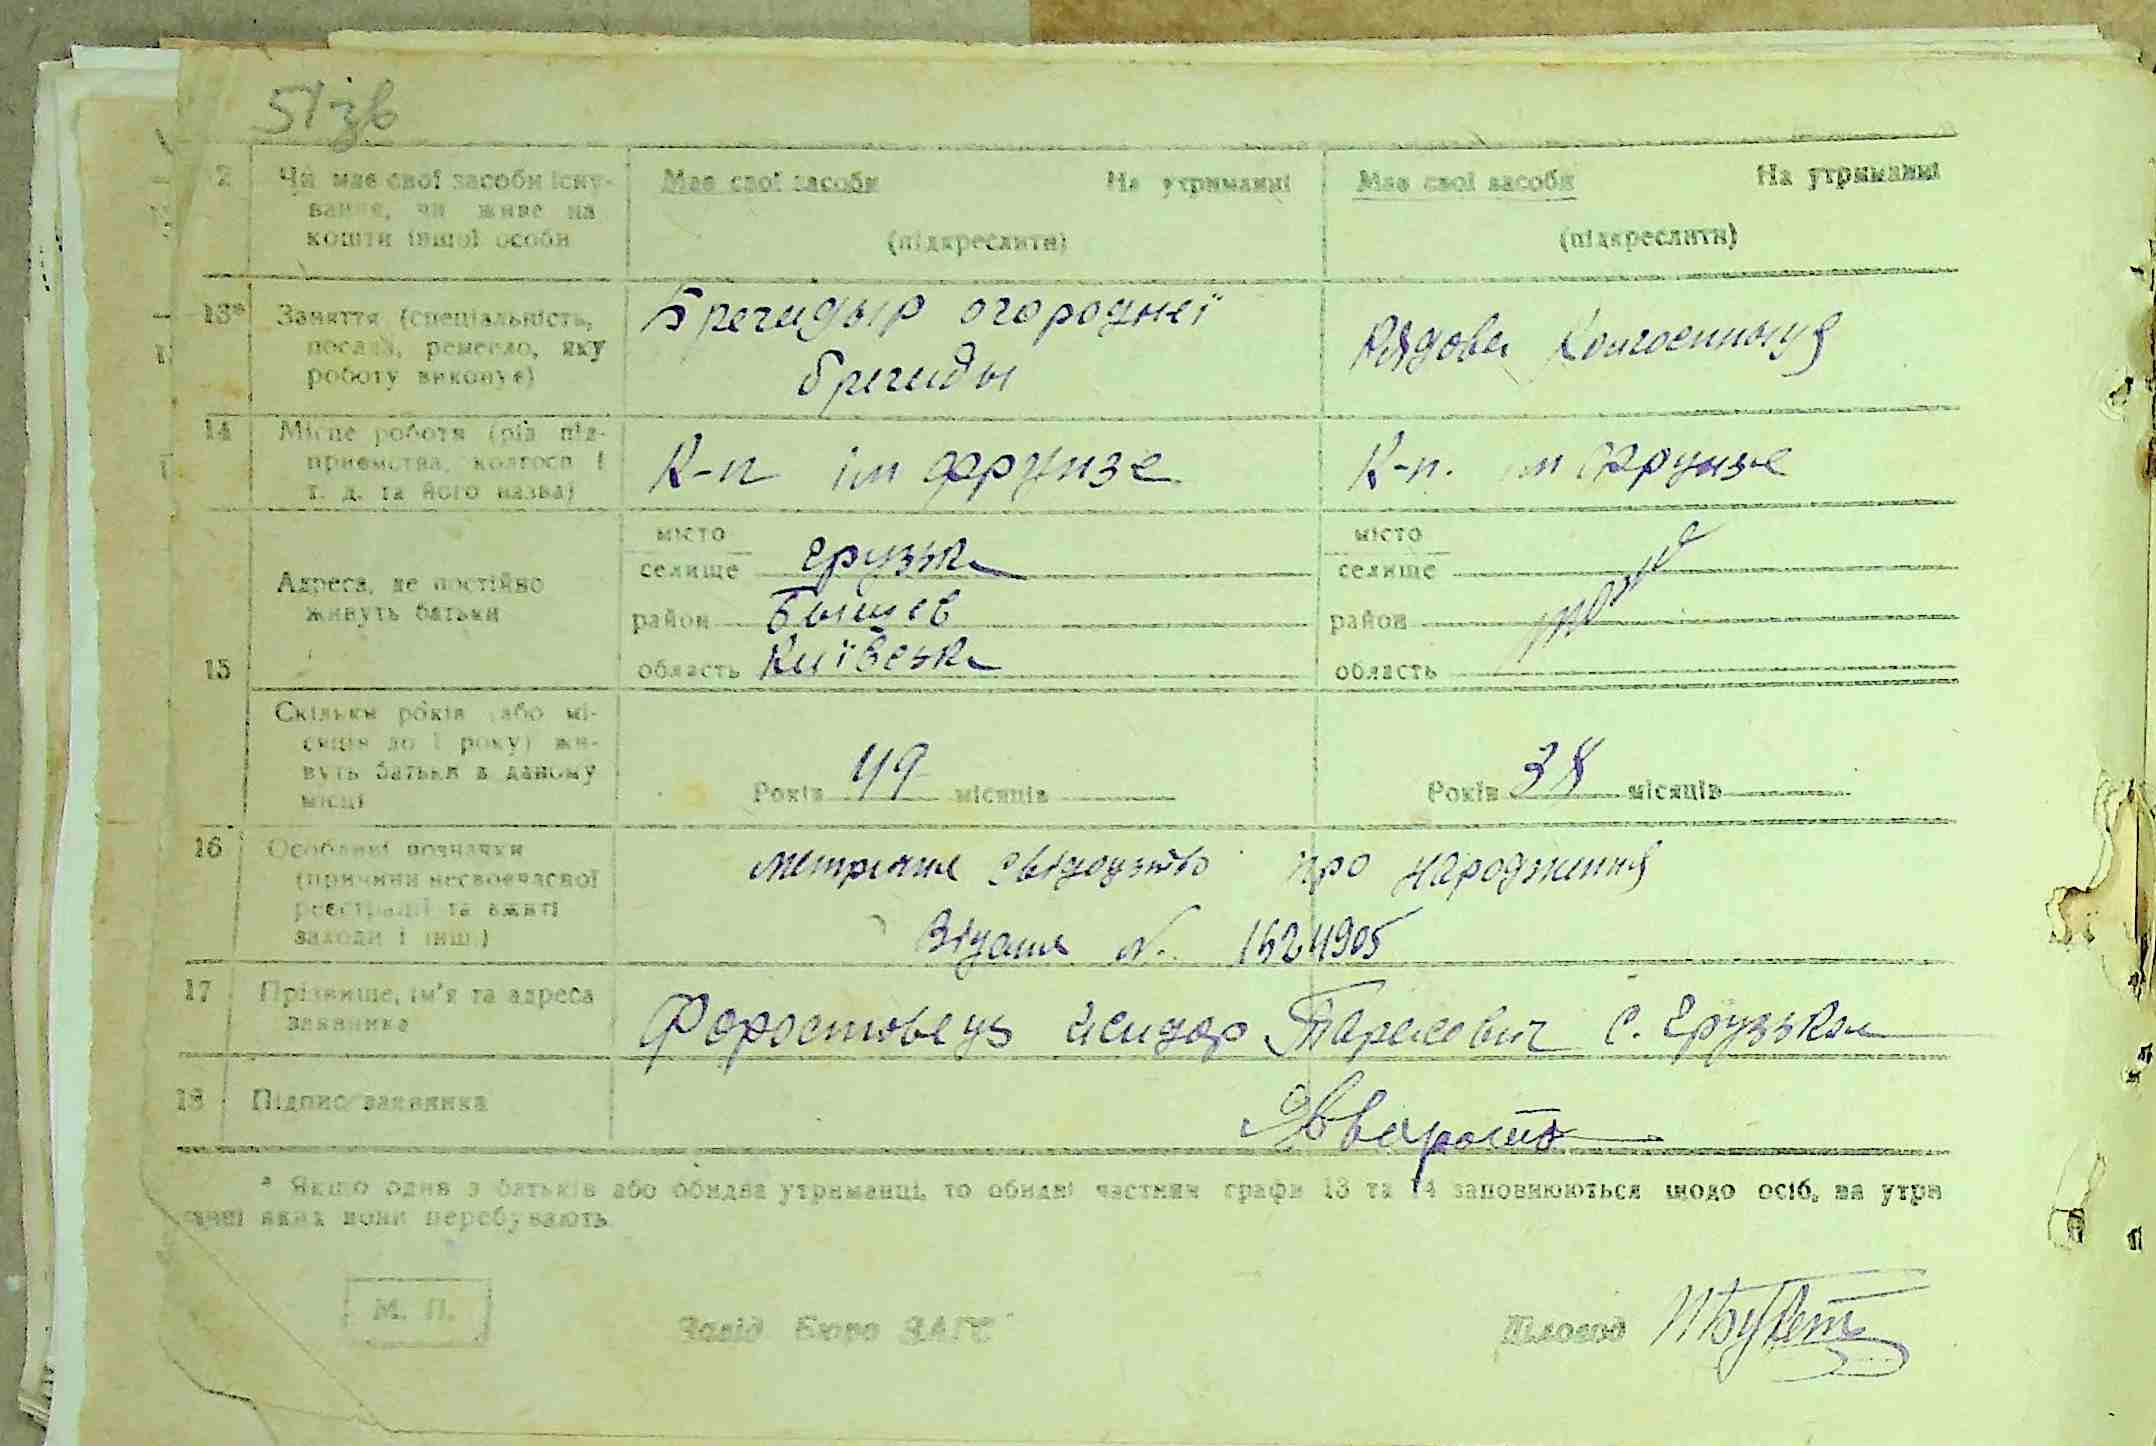 51 зв
2 Чи має свої засоби існу- Має свої засоби На утриманні Має свої засоби На утриманні
вання, чи живе на
кошти іншої особи (підкреслити) (підкреслити)
13* Заняття (спеціальність, Брегидыр огородньеї Рядова Колгоспниця
посада, ремесло, яку бригиды
роботу виконує)
14 Місце роботи (рід під- К-п ім Фрунзе К-п. ім Фрунзе
приємства, колгосп і
т. д. та його назва)
15 Адреса, де постійно
живуть батьки
місто місто
селище Грузька селище
район Бышев район тоже
область Київська область
Скільки років (або мі-
сяців до 1 року) жи-
вуть батьки в даному
місці Років 49 місяців Років 38 місяців
16 Особливі позначки метричне свідоцтво про народження
(причини несвоєчасної
реєстрації та вжиті Відане N. 1624905
заходи і інш.)
17 Прізвище, ім'я та адреса Форостовець Исидор Тарасович с. Грузька
заявника
18 Підпис заявника
* Якщо один з батьків або обидва утриманці, то обидві частини графи 13 та 14 заповнюються щодо осіб, на утри
манні яких вони перебувають.
М. П. Завід Бюро ЗАГС Діловод